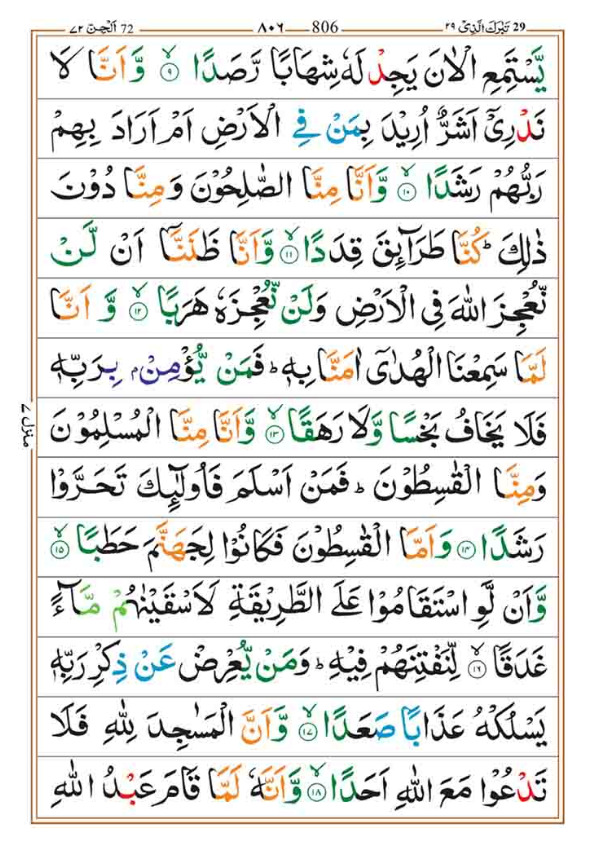 29 تَبٰرَكَ الَّذِیْ ۲۹ 806 ۸۰۶ 72 اَلْجِنّ ۷۲
یَّسْتَمِعِ الْاٰنَ یَجِدْ لَهٗ شِهَابًا رَّصَدًاۙ۝۹ وَّ اَنَّا لَا
نَدْرِیْۤ اَشَرٌّ اُرِیْدَ بِمَنْ فِی الْاَرْضِ اَمْ اَرَادَ بِهِمْ
رَبُّهُمْ رَشَدًاۙ۝۱۰ وَّ اَنَّا مِنَّا الصّٰلِحُوْنَ وَ مِنَّا دُوْنَ
ذٰلِكَؕ كُنَّا طَرَآىِٕقَ قِدَدًاۙ۝۱۱ وَّ اَنَّا ظَنَنَّاۤ اَنْ لَّنْ
نُّعْجِزَ اللّٰهَ فِی الْاَرْضِ وَ لَنْ نُّعْجِزَهٗ هَرَبًاۙ۝۱۲ وَّ اَنَّا
لَمَّا سَمِعْنَا الْهُدٰۤى اٰمَنَّا بِهٖؕ فَمَنْ یُّؤْمِنْۢ بِرَبِّهٖ
فَلَا یَخَافُ بَخْسًا وَّ لَا رَهَقًاۙ۝۱۳ وَّ اَنَّا مِنَّا الْمُسْلِمُوْنَ
وَ مِنَّا الْقٰسِطُوْنَؕ فَمَنْ اَسْلَمَ فَاُولٰٓىِٕكَ تَحَرَّوْا
رَشَدًا۝۱۴ وَ اَمَّا الْقٰسِطُوْنَ فَكَانُوْا لِجَهَنَّمَ حَطَبًاۙ۝۱۵
وَّ اَنْ لَّوِ اسْتَقَامُوْا عَلَى الطَّرِیْقَةِ لَاَسْقَیْنٰهُمْ مَّآءً
غَدَقًاۙ۝۱۶ لِّنَفْتِنَهُمْ فِیْهِؕ وَ مَنْ یُّعْرِضْ عَنْ ذِكْرِ رَبِّهٖ
یَسْلُكْهُ عَذَابًا صَعَدًاۙ۝۱۷ وَّ اَنَّ الْمَسٰجِدَ لِلّٰهِ فَلَا
تَدْعُوْا مَعَ اللّٰهِ اَحَدًاۙ۝۱۸ وَّ اَنَّهٗ لَمَّا قَامَ عَبْدُ اللّٰهِ
منزل ۷